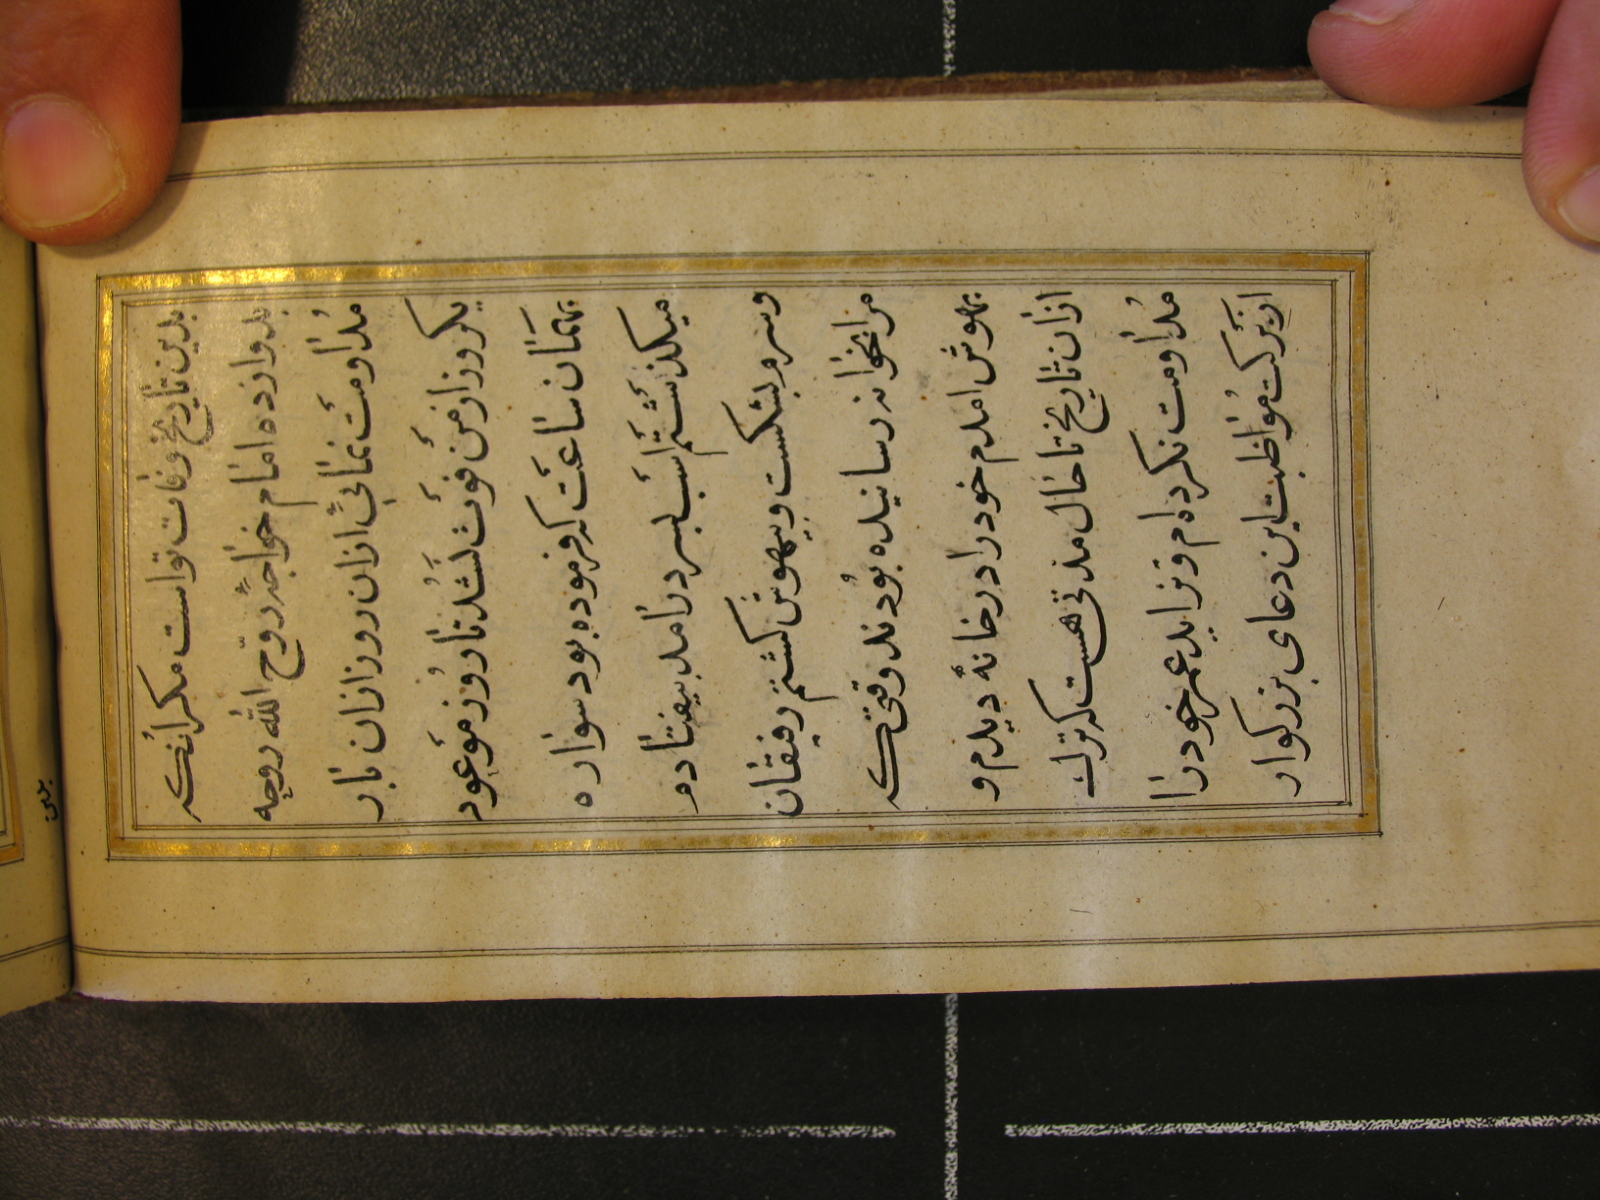 بدین تاریخ وفات تو است مکر انکه
بدوازده امام خواجه روح الله روحه
مداومت نمائی ازان روز ازان بار
یکروز از من فوت نشد تا روز موعود
بهمان ساعت که فرموده بود سواره
میکذشتم اسب بسر درامد بیفتادم
وسرم بشکست وبیهوش کشتم رفیقان
مرا بخانه رسانیده بودند وقتی که
بهوش امدم خود را در خانه دیدم و
ازان تاریخ تا حال مدتی هست که ترک
مداومت نکرده ام وتزاید عمر خود را
از برکت مواظبت این دعای بزرکوار
بدین